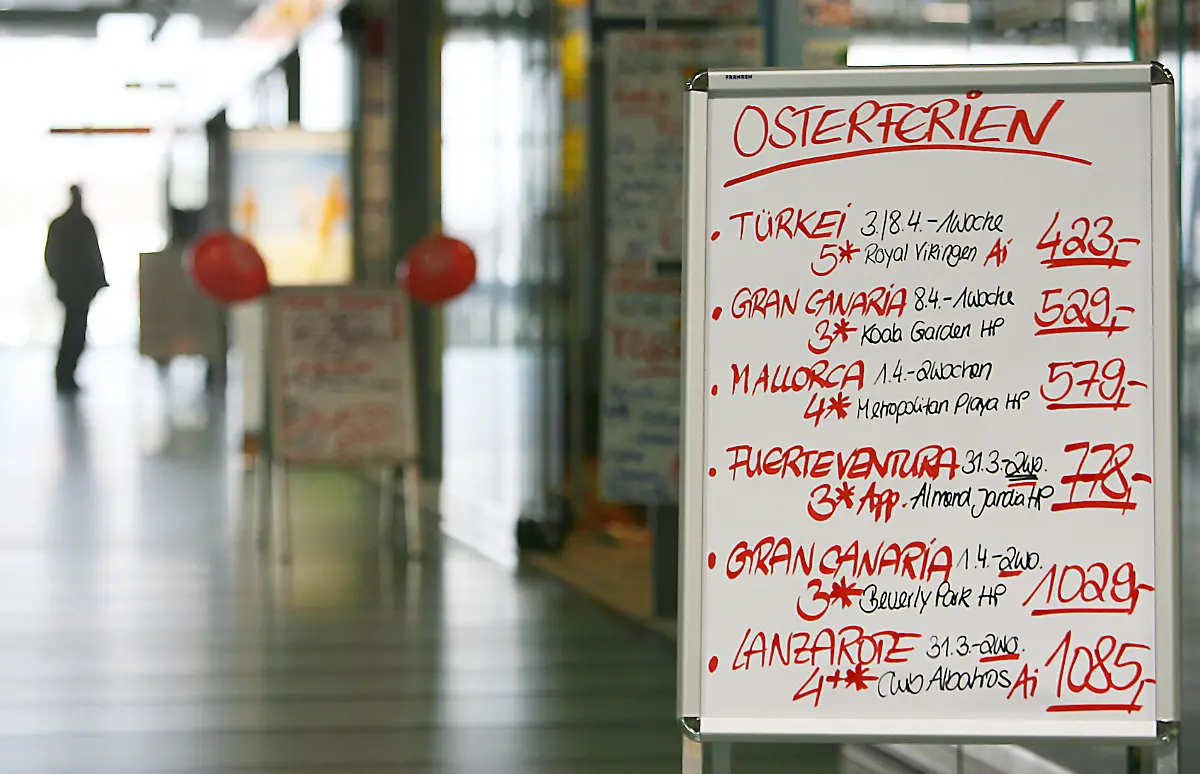 FRANKEN
OSTERFERIEN
• TÜRKEI 3./8.4.-1Woche 423,-
5* Royal Vikingen Ai
• GRAN CANARIA 8.4.-1Woche 529,-
3* Koala Garden HP
• MALLORCA 1.4.-2Wochen 579,-
4* Metropolitan Playa HP
• FUERTEVENTURA 31.3.-2Wo. 778,-
3* App. Almond Jardia HP
• GRAN CANARIA 1.4.-2Wo. 1029,-
3* Beverly Park HP
• LANZAROTE 31.3.-2Wo. 1085,-
4+* Club Albatros Ai